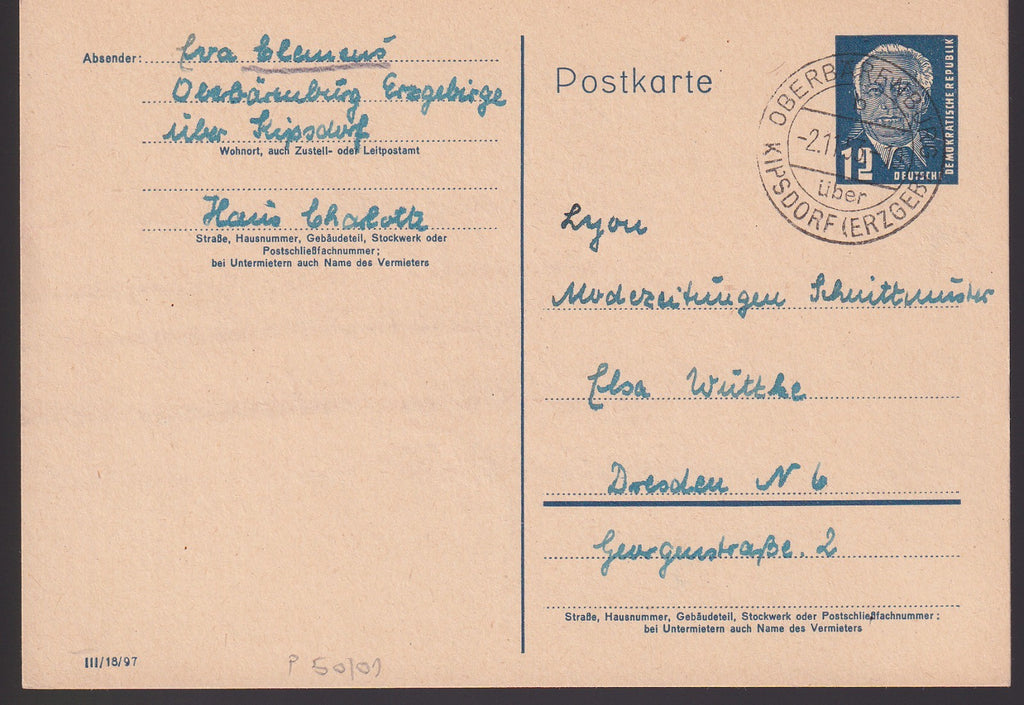 Absender: Eva Clemens
Oberbärenburg Erzgebirge
über Kipsdorf
Wohnort, auch Zustell- oder Leitpostamt
Haus Charlotte
Straße, Hausnummer, Gebäudeteil, Stockwerk oder
Postschließfachnummer;
bei Untermietern auch Name des Vermieters
III/18/97
P 50/01
Postkarte
12
DEUTSCHE
DEMOKRATISCHE REPUBLIK
-2.11
über
KIPSDORF (ERZGEB
Lyon
Modezeitungen Schnittmuster
Elsa Wuttke
Dresden N 6
Georgenstraße. 2
Straße, Hausnummer, Gebäudeteil, Stockwerk oder Postschließfachnummer;
bei Untermietern auch Name des Vermieters